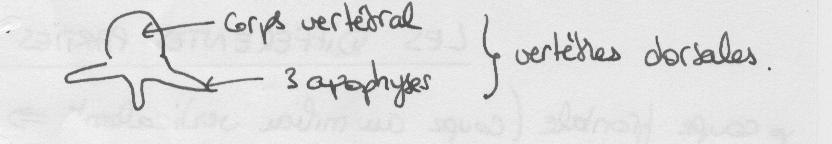 corps vertébral
3 apophyses
vertèbres dorsales.